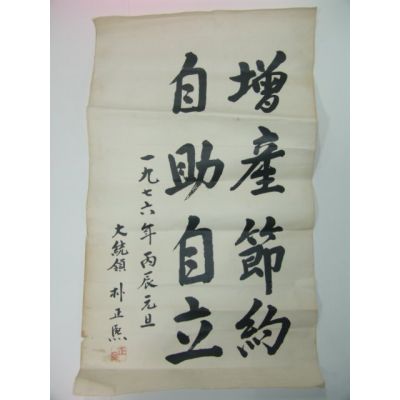 增産節約
自助自立
一九七六年 丙辰元旦
大統領 朴正熙